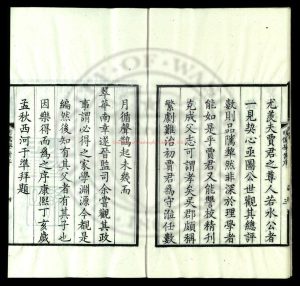 尤羡夫賈君之尊人若水公者
一見契心亟圖公世觀其總評
數則品騭犂然非深於理學者
能如是乎賈君又能讐校精刋
克成父志可謂孝矣
郡頗稱
繁劇難治初賈君為守淮任數
月循聲鵲起未幾而
翠華南幸遂晉監司余嘗觀其政
事謂必得之家學淵源今覩是
編然後知有其父者有其子也
因樂得而為之序康熙丁亥歲
孟秋西河于準拜題